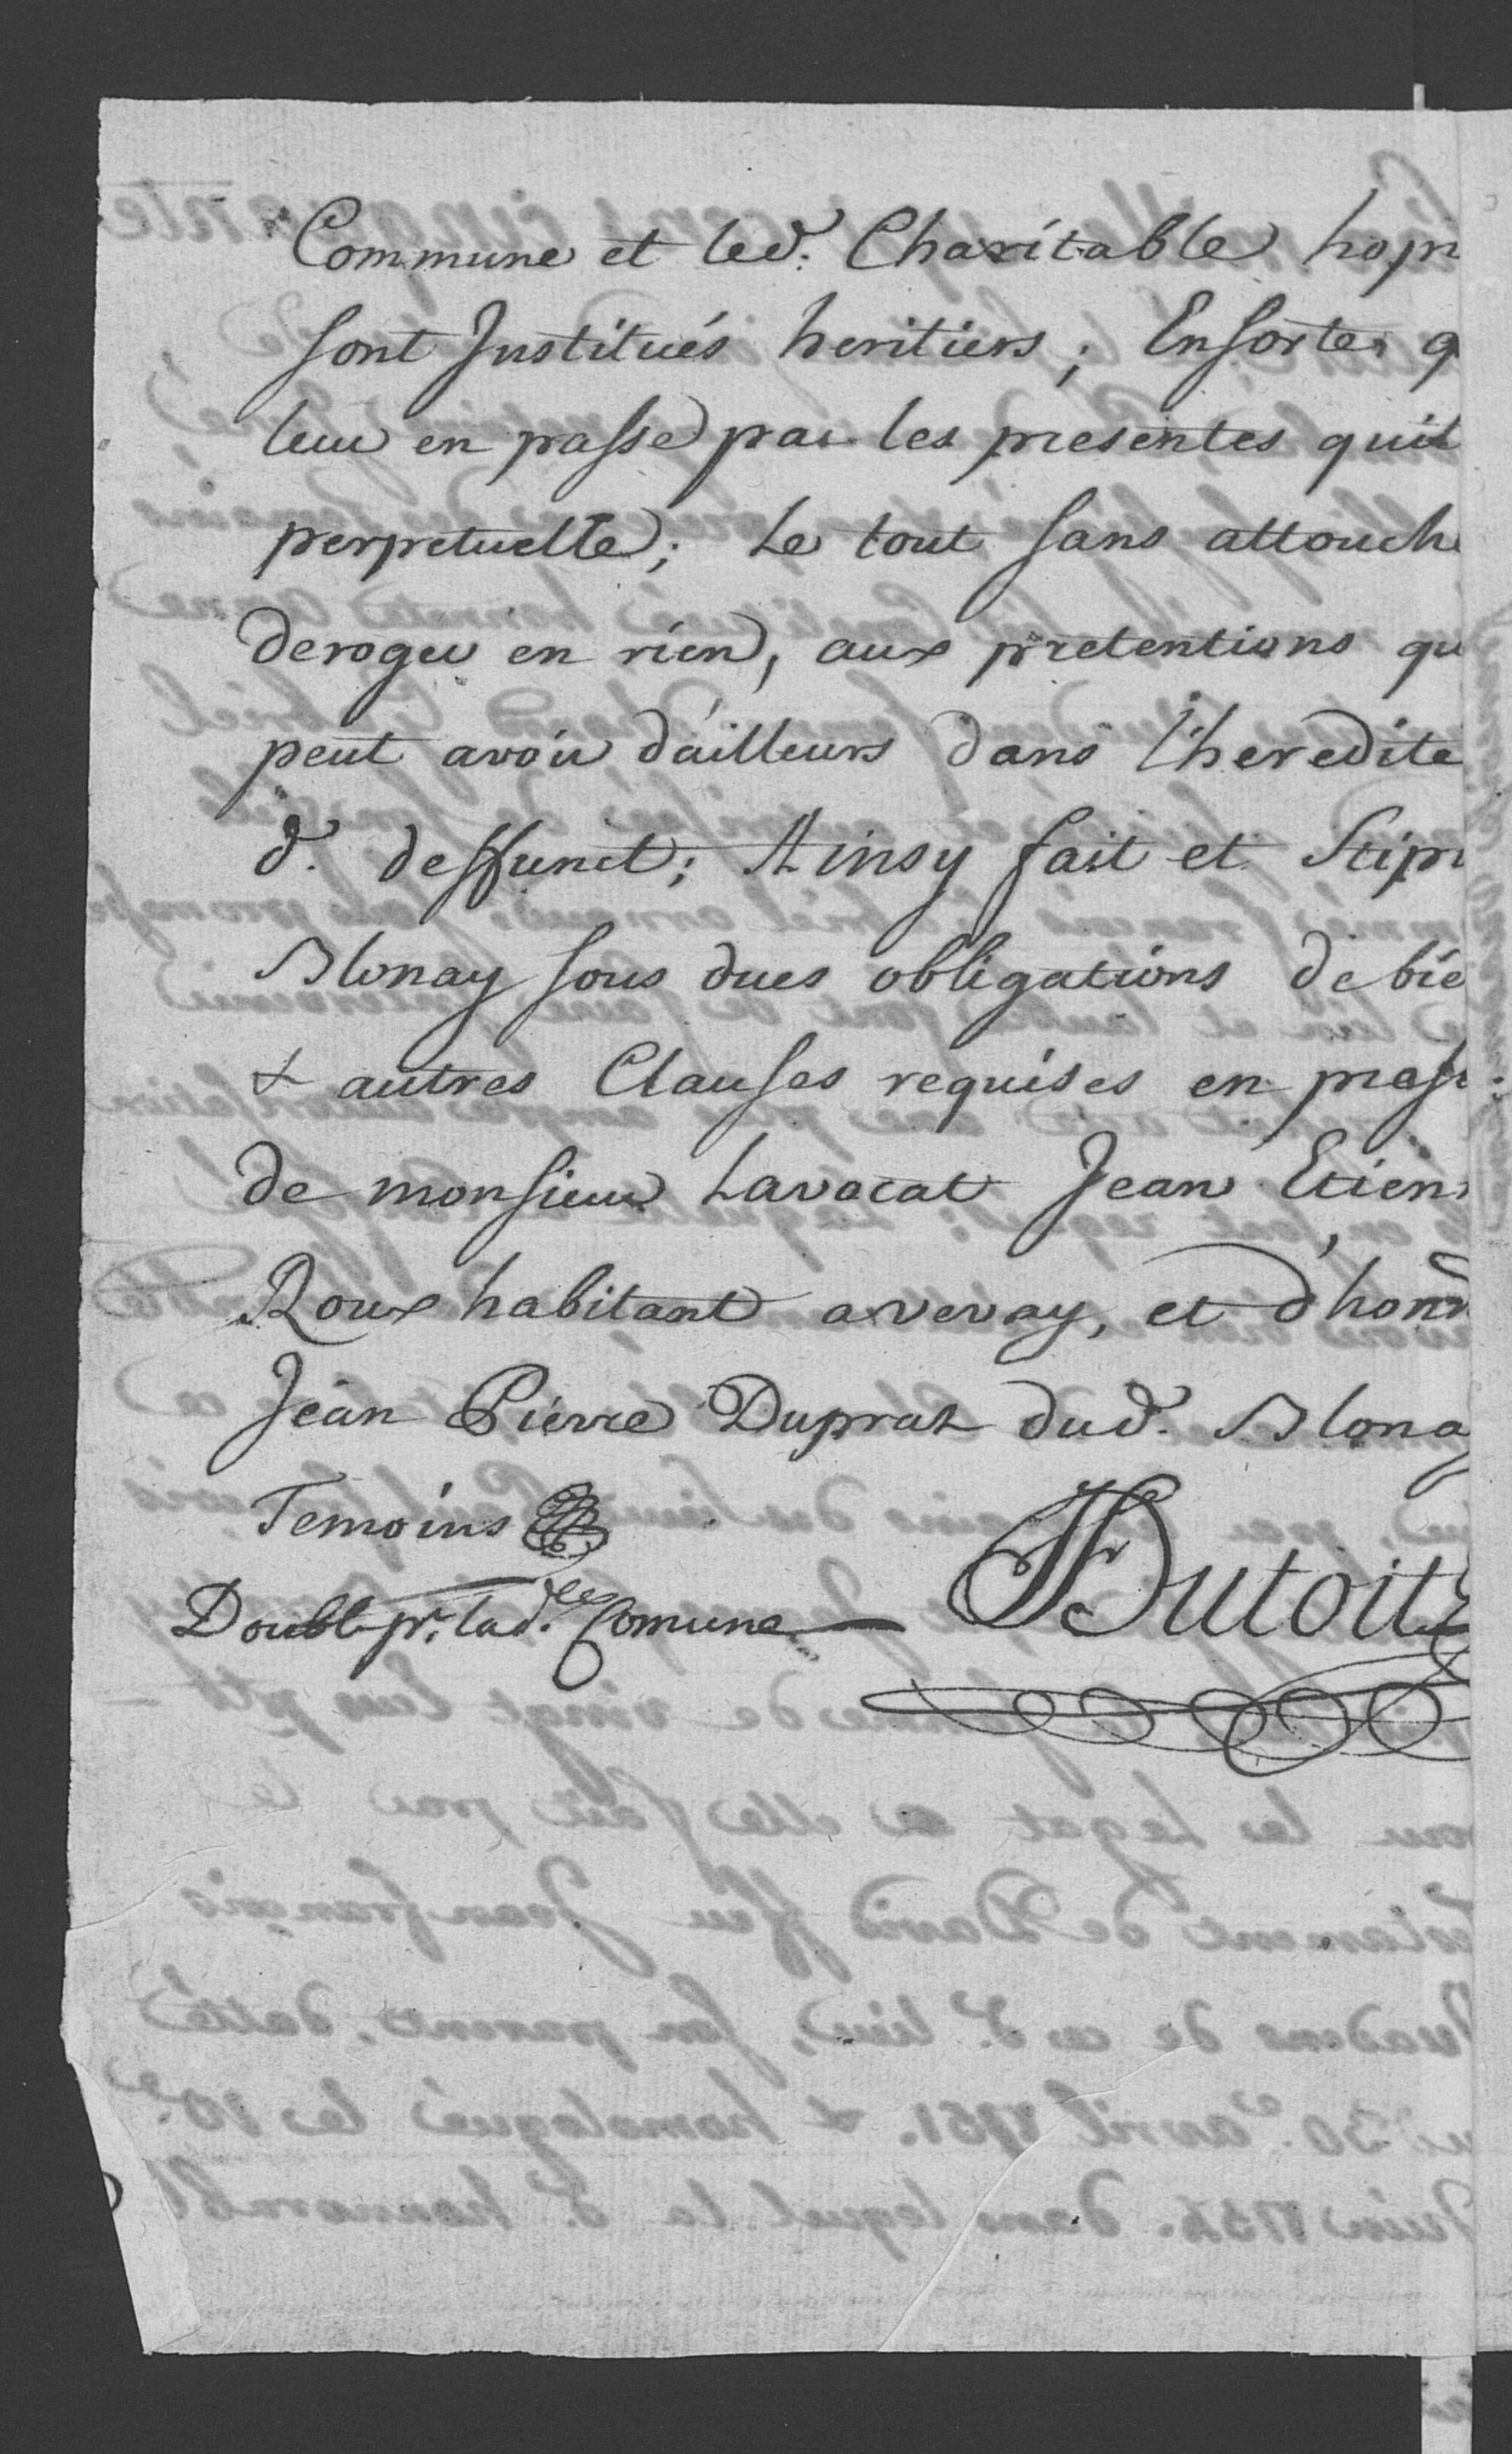 Commune et led. Charitable hopi
sont Institués heritiers; Ensorte q
leur en passe par les presentes quit
perpetuelle; Le tout sans attouche
deroger en rien, aux pretentions qu
peut avoir d'ailleurs dans l'heredité
d. deffunct; Ainsy fait et Stip
Blonay sous dues obligations de bie
& autres Clauses requises en prese
de monsieur Lavocat Jean Etien
Roux habitant a vevay, et d'hono
Jean Pierre Duprat dud. Blona
Temoins
Double pr. lad. Comune
Dutoit